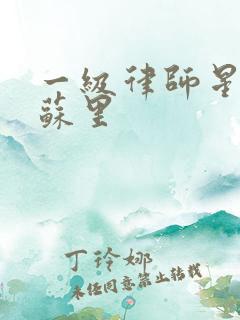 一級律師星
蘇里
丁玲娜
未經同意禁止轉載